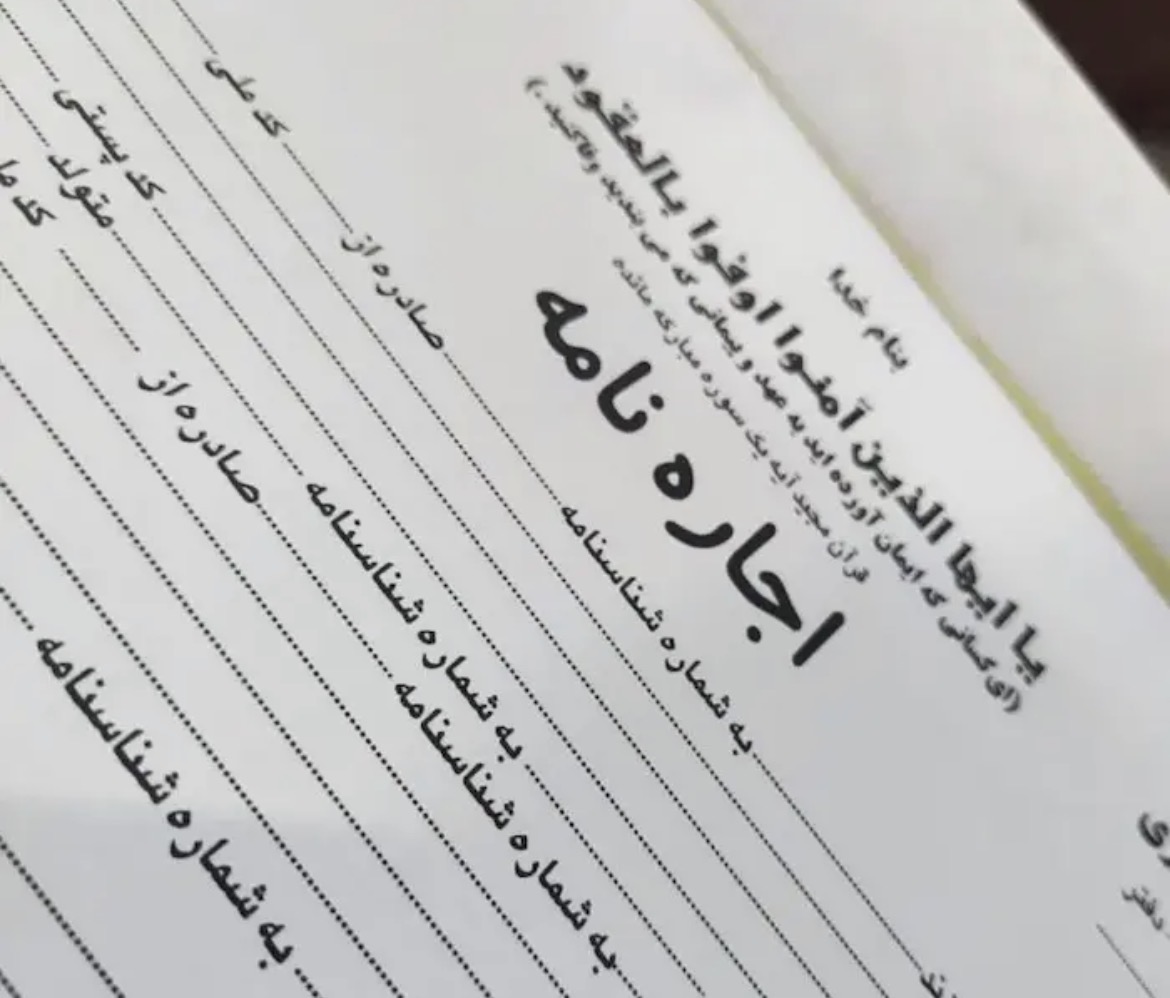 بنام خدا
یا ایها الذین آمنوا اوفوا بالعقود
(ای کسانی که ایمان آورده اید به عهد و پیمانی که می بندید وفا کنید.)
قرآن مجید آیه یک سوره مبارکه مائده
اجاره نامه
به شماره شناسنامه صادره از کد ملی
به شماره شناسنامه کد پستی
به شماره شناسنامه صادره از متولد
به شماره شناسنامه کد
دفتر